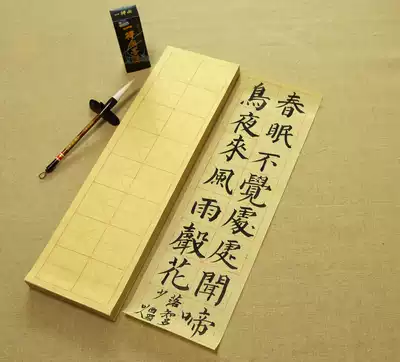 春眠不覺處處聞啼
鳥夜來風雨聲花
落
少